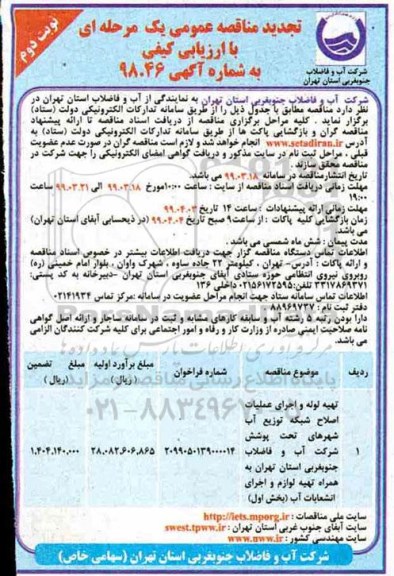 نوبت دوم
تجدید مناقصه عمومی یک مرحله ای
با ارزیابی کیفی
به شماره آگهی ۹۸.۴۶
شرکت آب و فاضلاب
جنوبغربی استان تهران
شرکت آب و فاضلاب جنوبغربی استان تهران به نمایندگی از آب و فاضلاب استان تهران در
نظر دارد مناقصه مطابق با جدول ذیل را از طریق سامانه تدارکات الکترونیکی دولت (ستاد)
برگزار نماید . کلیه مراحل برگزاری مناقصه از دریافت اسناد مناقصه تا ارائه پیشنهاد
مناقصه گران و بازگشایی پاکت ها از طریق سامانه تدارکات الکترونیکی دولت (ستاد) به
آدرس www.setadiran.ir انجام خواهد شد و لازم است مناقصه گران در صورت عدم عضویت
قبلی ، مراحل ثبت نام در سایت مذکور و دریافت گواهی امضای الکترونیکی را جهت شرکت در
مناقصه محقق سازند .
تاریخ انتشار مناقصه در سامانه ۹۹.۰۳.۱۸ می باشد.
مهلت زمانی دریافت اسناد مناقصه از سایت : ساعت ۱۰:۰۰ مورخ ۹۹.۰۳.۱۸ الی ۹۹.۰۳.۲۱ ساعت
۱۹:۰۰
مهلت زمانی ارائه پیشنهادات : ساعت ۱۴ تاریخ ۹۹.۰۴.۰۳
زمان بازگشایی کلیه پاکات : از ساعت ۹ صبح تاریخ ۹۹.۰۴.۰۴ (در ذیحسابی آبفای استان تهران)
می باشد.
مدت پیمان : شش ماه شمسی می باشد .
اطلاعات تماس دستگاه مناقصه گزار جهت دریافت اطلاعات بیشتر در خصوص اسناد مناقصه
و ارائه پاکات : آدرس- تهران ، کیلومتر ۲۲ جاده ساوه ، شهرک واوان ، بلوار امام خمینی (ره)
روبروی نیروی انتظامی حوزه ستادی آبفای جنوبغربی استان تهران -دبیرخانه به کد پستی:
۳۳۱۷۸۶۹۳۷۱ تلفن:۰۲۱۵۶۱۷۲۵۹۵ داخلی ۱۳۶
اطلاعات تماس سامانه ستاد جهت انجام مراحل عضویت در سامانه :مرکز تماس ۰۲۱۴۱۹۳۴
دفتر ثبت نام : ۸۸۹۶۹۷۳۷
دارا بودن رتبه ۵ رشته آب و سابقه کارهای مشابه و ثبت در سامانه ساجار و ارائه اصل گواهی
نامه صلاحیت ایمنی صادره از وزارت کار و رفاه و امور اجتماعی برای کلیه شرکت کنندگان الزامی
می باشد.
ردیف موضوع مناقصه شماره فراخوان مبلغ برآورد اولیه (ریال) مبلغ تضمین (ریال)
۱ تهیه لوله و اجرای عملیات
اصلاح شبکه توزیع آب
شهرهای تحت پوشش
شرکت آب و فاضلاب
جنوبغربی استان تهران به
همراه تهیه لوازم و اجرای
انشعابات آب (بخش اول)
۲۰۹۹۰۵۰۱۳۹۰۰۰۰۱۴ ۲۸.۰۸۲.۶۰۶.۸۶۵ ۱.۴۰۴.۱۴۰.۰۰۰
۰۲۱-۸۸۳۴۹۶۷۰
سایت ملی مناقصات : http://iets.mporg.ir
سایت آبفای جنوب غربی استان تهران : swest.tpww.ir
سایت مهندسی کشور : www.nww.ir
شرکت آب و فاضلاب جنوبغربی استان تهران (سهامی خاص)